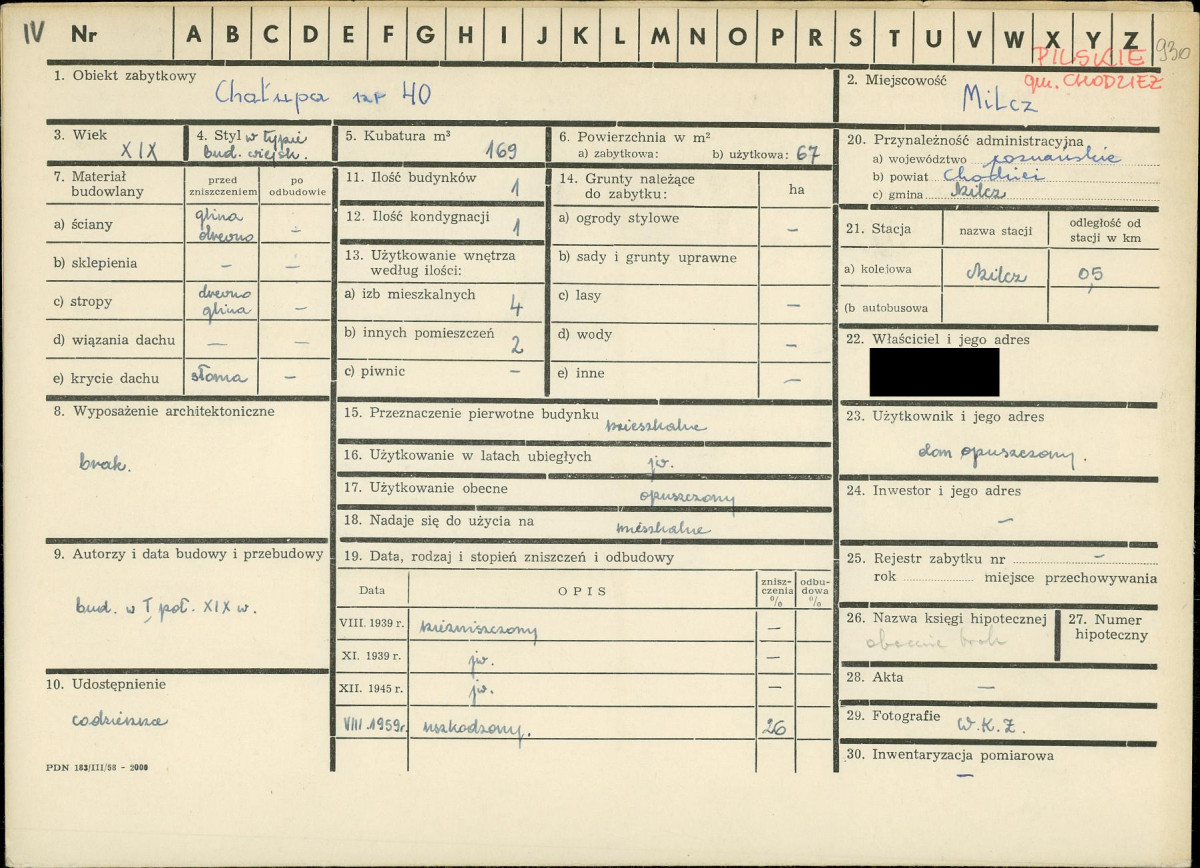 IV Nr A B C D E F G H I J K L M N O P R S T U V W X Y Z 930
PILSKIE
gm. CHODZIEŻ
1. Obiekt zabytkowy
Chałupa nr 40
2. Miejscowość
Milcz
3. Wiek
XIX
4. Styl w typie
bud. wiejsk.
5. Kubatura m³
169
6. Powierzchnia w m²
a) zabytkowa: b) użytkowa: 67
7. Materiał budowlany
przed zniszczeniem
po odbudowie
a) ściany
glina
drewno
–
b) sklepienia – –
c) stropy
drewno
glina
–
d) wiązania dachu — —
e) krycie dachu słoma –
8. Wyposażenie architektoniczne
brak.
9. Autorzy i data budowy i przebudowy
bud. w I poł. XIX w.
10. Udostępnienie
codzienne
PDN 183/III/58 - 2000
11. Ilość budynków 1
12. Ilość kondygnacji 1
13. Użytkowanie wnętrza
według ilości:
a) izb mieszkalnych 4
b) innych pomieszczeń 2
c) piwnic –
14. Grunty należące
do zabytku:
ha
a) ogrody stylowe –
b) sady i grunty uprawne
c) lasy –
d) wody –
e) inne –
15. Przeznaczenie pierwotne budynku
mieszkalne
16. Użytkowanie w latach ubiegłych jw.
17. Użytkowanie obecne opuszczony
18. Nadaje się do użycia na mieszkalne
19. Data, rodzaj i stopień zniszczeń i odbudowy
Data
OPIS
zniszczenia %
odbudowa %
VIII. 1939 r. niezniszczony —
XI. 1939 r. jw. —
XII. 1945 r. jw. —
VIII.1959r. uszkodzony. 26
20. Przynależność administracyjna
a) województwo poznańskie
b) powiat Chodzież
c) gmina Milcz
21. Stacja
nazwa stacji
odległość od
stacji w km
a) kolejowa Milcz 0,5
(b autobusowa
22. Właściciel i jego adres
23. Użytkownik i jego adres
dom opuszczony.
24. Inwestor i jego adres
–
25. Rejestr zabytku nr –
rok miejsce przechowywania
26. Nazwa księgi hipotecznej
obecnie brak
27. Numer
hipoteczny
28. Akta
—
29. Fotografie W.K.Z.
30. Inwentaryzacja pomiarowa
–